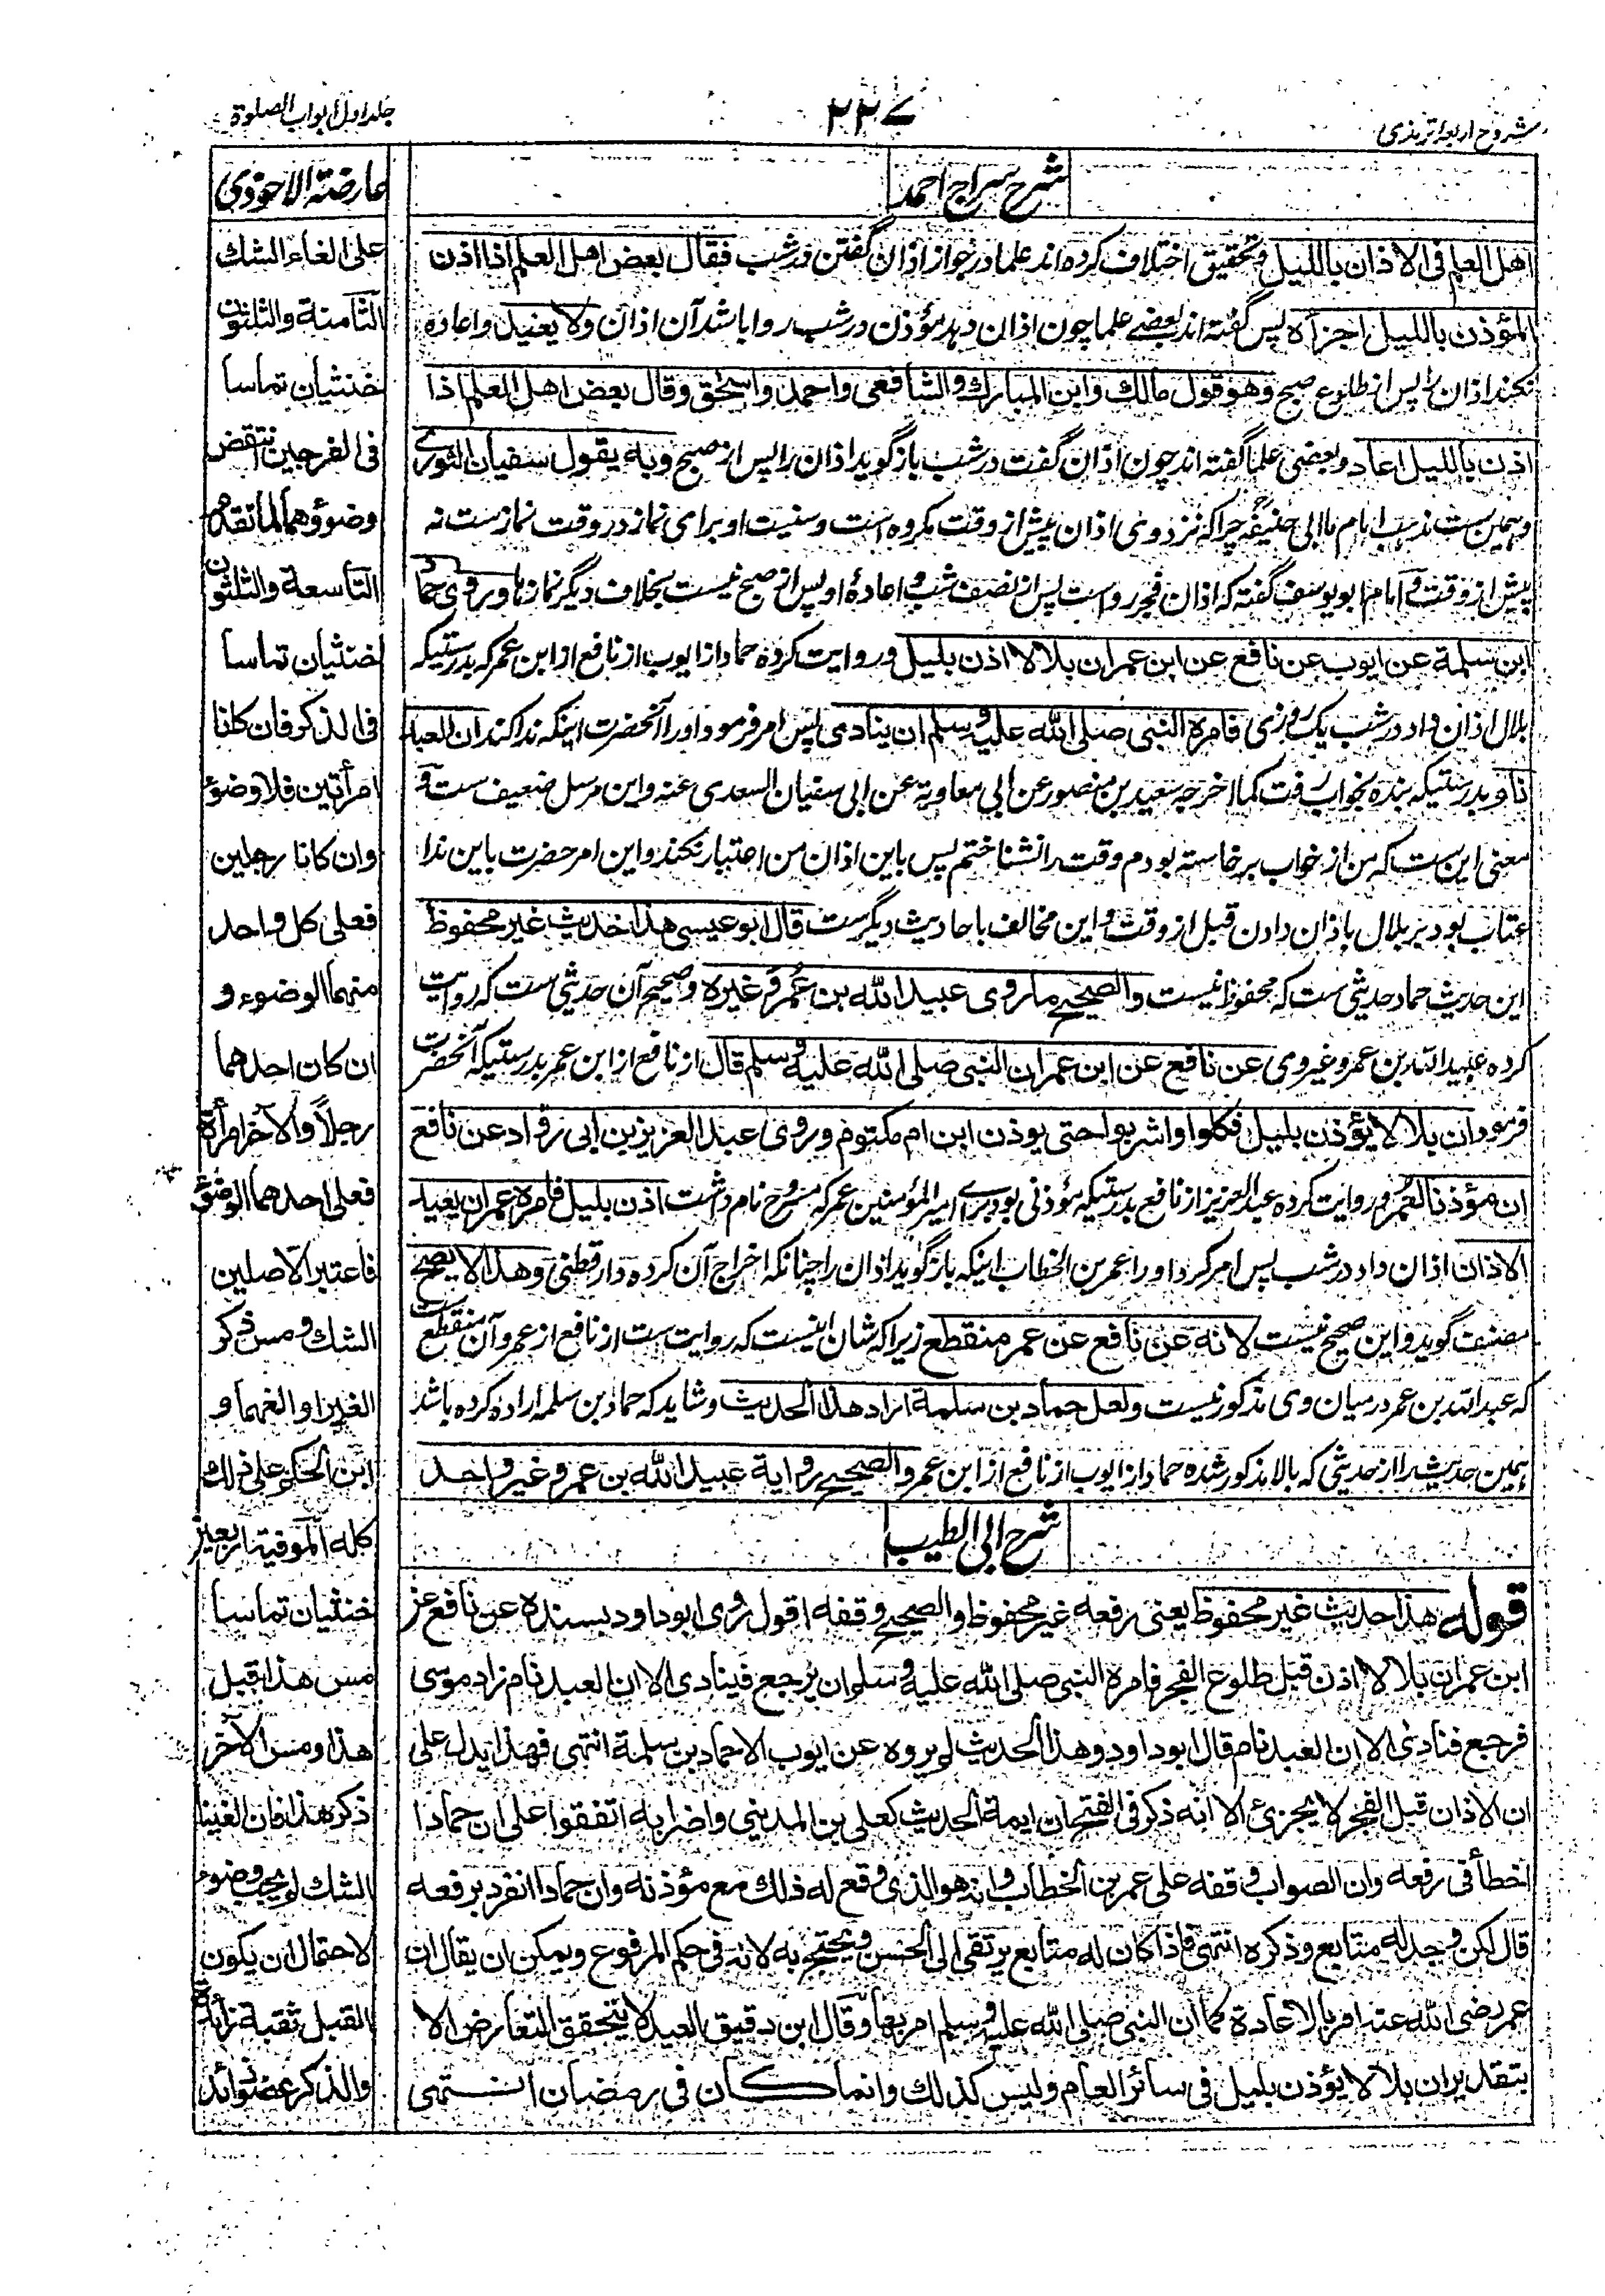 شروح اربعه ترمذی
۲۲۷
جلد اول ابواب الصلوة
شرح سراج احمد
اهل العلم فی الاذان باللیل وتحقیق اختلاف کرده اند علما در جواز اذان گفتن در شب فقال بعض اهل العلم اذا اذن
المؤذن باللیل اجزأه پس گفته اند بعضے علما چون اذان دہد مؤذن در شب روا باشد آن اذان ولا یعید واعاده
نکند اذان را پس از طلوع صبح وهو قول مالك وابن المبارك والشافعی واحمد واسحٰق وقال بعض اهل العلم اذا
اذن باللیل اعاد وبعضی علما گفته اند چون اذان گفت در شب باز گوید اذان را پس از صبح وبه یقول سفیان الثوری
وہمین ست مذہب امام ما ابی حنیفہ چرا که نزد وی اذان پیش از وقت مکروه است وسنیت او برای نماز در وقت نماز ست نه
پیش از وقت وامام ابو یوسف گفته که اذان فجر روا ست پس از نصف شب واعادهٔ او پس از صبح نیست بخلاف دیگر نماز ها وروی حماد
ابن سلمة عن ایوب عن نافع عن ابن عمر ان بلالا اذن بلیل وروایت کرده حماد از ایوب از نافع از ابن عمر که بدرستیکه
بلال اذان داد در شب یک روزی فامره النبی صلی الله علیه وسلم ان ینادی پس امر فرمود او را آنحضرت اینکه ندا کند ان العبد
نام وبدرستیکه بنده بخواب رفت کما اخرجه سعید بن منصور عن ابی معاویة عن ابی سفیان السعدی عنه واین مرسل ضعیف ست و
معنی این ست که من از خواب برخاسته بودم وقت را نشناختم پس باین اذان من اعتبار نکنند واین امر حضرت باین ندا
عتاب بود بر بلال باذان دادن قبل از وقت واین مخالف با حادیث دیگر ست قال ابو عیسی هذا حدیث غیر محفوظ
این حدیث حماد حدیثی ست که محفوظ نیست والصحیح ما روی عبید الله بن عمر وغیره وصحیح آن حدیثی ست که روایت
کرده عبید الله بن عمر وغیر وی عن نافع عن ابن عمر ان النبی صلی الله علیه وسلم قال از نافع از ابن عمر بدرستیکه آنحضرت
فرمود ان بلالا یؤذن بلیل فکلوا واشربوا حتی یوذن ابن ام مکتوم وروی عبد العزیز بن ابی رواد عن نافع
ان مؤذنا لعمر وروایت کرده عبد العزیز از نافع بدرستیکه مؤذنی بود برای امیر المؤمنین عمر که مسروح نام داشت اذن بلیل فامره عمر ان یعید
الاذان اذان داد در شب پس امر کرد او را عمر بن الخطاب اینکه باز گوید اذان را چنانکه اخراج آن کرده دار قطنی وهذا لا یصح
مصنف گوید واین صحیح نیست لانه عن نافع عن عمر منقطع زیرا که شان اینست که روایت ست از نافع از عمر وآن منقطع ست
که عبد الله بن عمر درمیان وی مذکور نیست ولعل حماد بن سلمة اراد هذا الحدیث وشاید که حماد بن سلمه اراده کرده باشد
ہمین حدیث را از حدیثی که بالا مذکور شده حماد از ایوب از نافع از ابن عمر والصحیح روایة عبید الله بن عمر وغیر واحد
شرح ابی الطیب
قوله هذا حدیث غیر محفوظ یعنی رفعه غیر محفوظ والصحیح وقفه اقول روی ابو داود بسنده عن نافع عن
ابن عمر ان بلالا اذن قبل طلوع الفجر فامره النبی صلی الله علیه وسلم ان یرجع فینادی الا ان العبد نام زاد موسی
فرجع فنادی الا ان العبد نام قال ابو داود وهذا الحدیث لم یروه عن ایوب الا حماد بن سلمة انتهی فهذا یدل علی
ان الاذان قبل الفجر لا یجزئ الا انه ذکر فی الفتح ان ایمة الحدیث کعلی بن المدینی واضرابه اتفقوا علی ان حمادا
اخطأ فی رفعه وان الصواب وقفه علی عمر بن الخطاب وانه هو الذی وقع له ذلك مع مؤذنه وان حمادا انفرد برفعه
قال لکن وجد له متابع وذکره انتهی فاذا کان له متابع یرتقی الی الحسن ویحتج به لانه فی حکم المرفوع ویمکن ان یقال ان
عمر رضی الله عنه امر بالاعادة کما ان النبی صلی الله علیه وسلم امر بها وقال ابن دقیق العید لا یتحقق التعارض الا
بتقدیر ان بلالا یؤذن بلیل فی سائر العام ولیس کذلك وانما کان فی رمضان انتهی
عارضة الاحوذی
علی الغاء الشك
الثامنة والثلثون
خنثیان تماسا
فی الفرجین انتقض
وضوؤهما لما تقدم
التاسعة والثلثون
خنثیان تماسا
فی الذکر فان کانا
امرأتین فلا وضوء
وان کانا رجلین
فعلی کل واحد
منهما الوضوء و
ان کان احدهما
رجلاً والآخر امرأة
فعلی احدهما الوضوء
فاعتبر الاصلین
الشك ومس ذکر
الغیر او الغهما و
ابن الحکم علی ذلك
کله الموفیة اربعین
خنثیان تماسا
مس هذا قبل
هذا ومس الآخر
ذکر هذا فان الغینا
الشك لم یجب وضوء
لاحتمال ان یکون
القبل ثقبة زائدة
والذکر عضو زائد